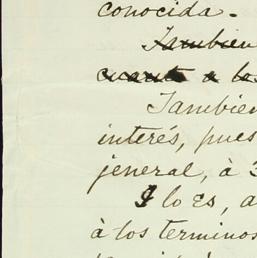 conocida.
Tambien
cuanto a los
Tambien
interés, pues
jeneral, à
y lo es, a
à los terminos